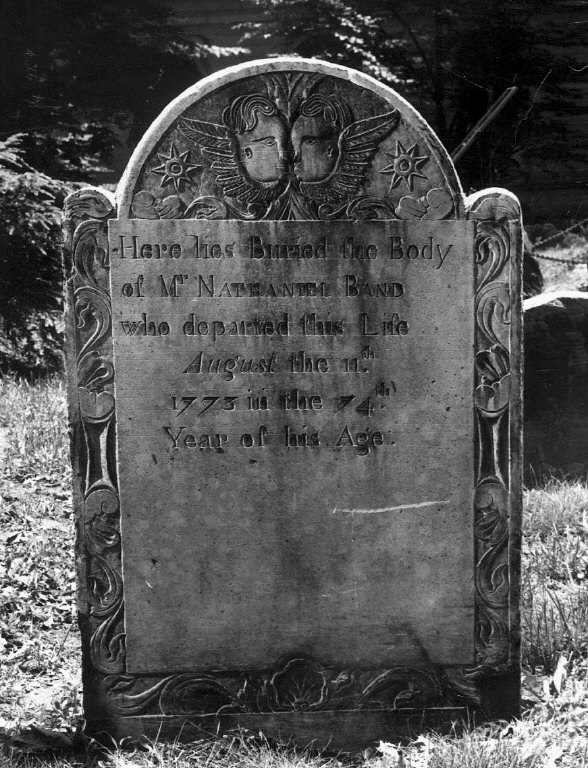 Here lies Buried the Body
of Mr NATHANIEL BAND
who departed this Life
August the 11th
1773 in the 74th
Year of his Age.